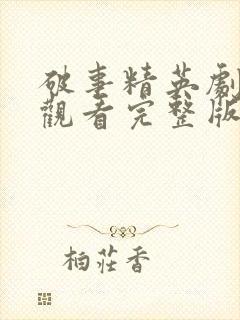 破事精英劇
觀看完整版
柏莊香